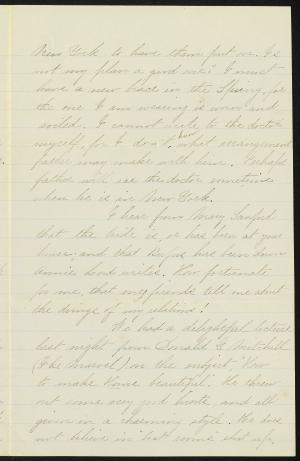 New York to have them put on. Is
not my plan a good one? I must
have a new brace in the Spring, for
the one I am wearing is worn and
soiled. I cannot write to the doctor
myself, for I don't know what arrangement
father may make with him. Perhaps
father will see the doctor sometime
when he is in New York.
I hear from Mary Sanford
that the bride is, or has been at your
house, and that Rufus has been down
Annie writes. How fortunate
for me, that my friends tell me about
the doings of my relations!
We had a delightful lecture
last night from Donald G. Mitchell
(Ike Marvel), on the subject "How
to make Home beautiful." He threw
out some very good hints, and all
given in a charming style. He does
not believe in "best rooms" shut up,